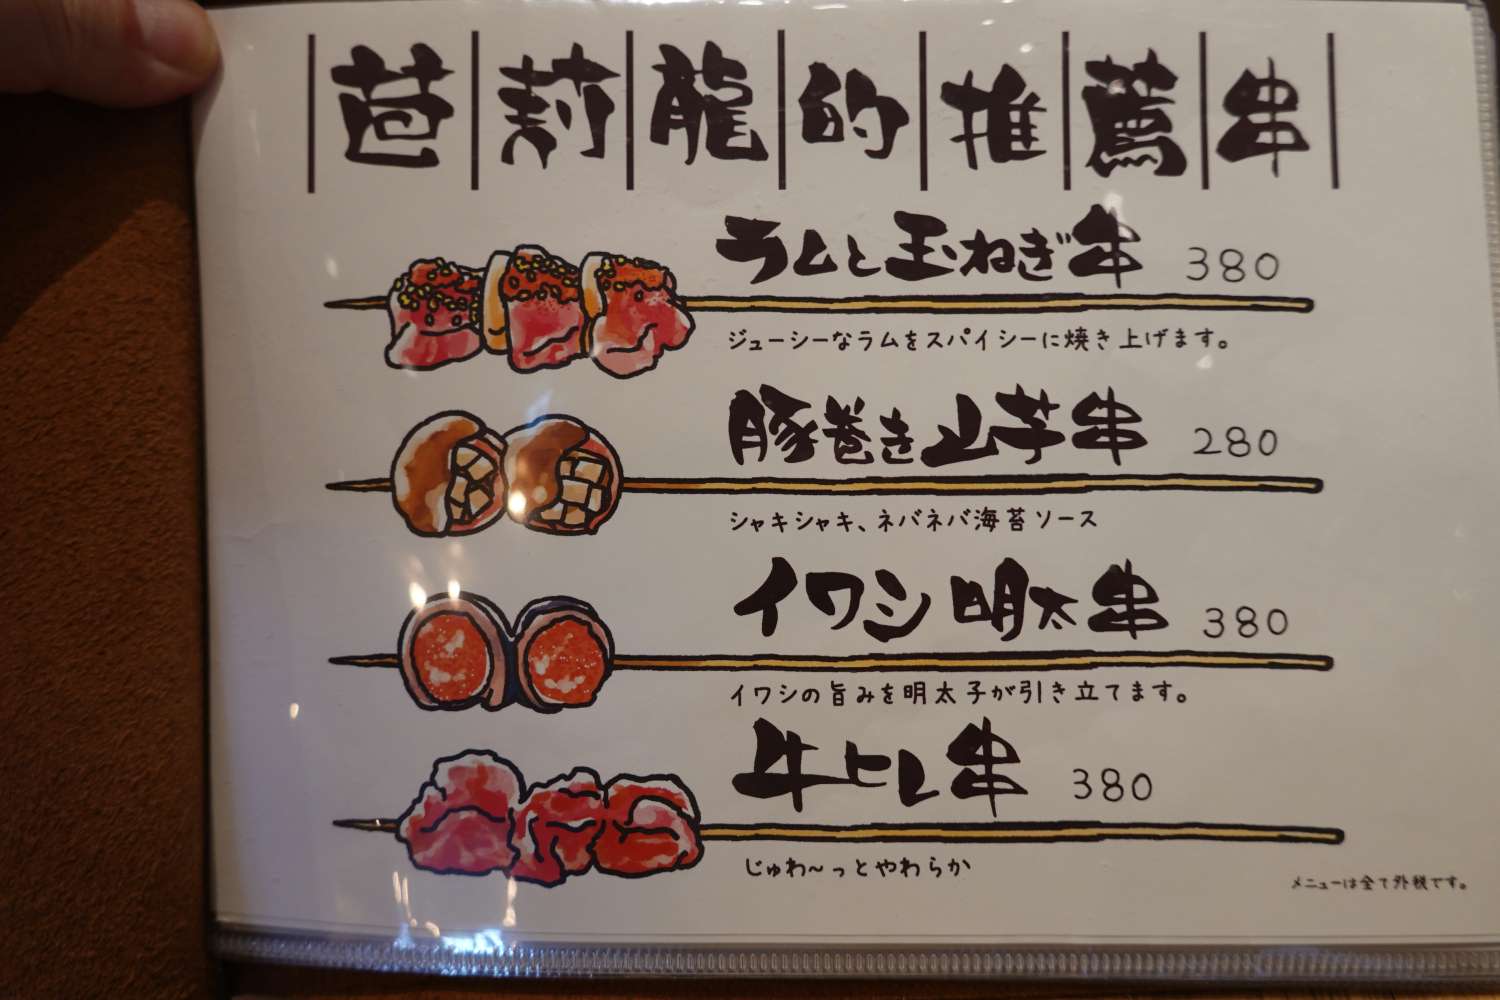 芭莉龍的推薦串
ラムと玉ねぎ串 380
ジューシーなラムをスパイシーに焼き上げます。
豚巻き山芋串 280
シャキシャキ、ネバネバ海苔ソース
イワシ明太串 380
イワシの旨みを明太子が引き立てます。
牛ヒレ串 380
じゅわ～っとやわらか
メニューは全て外税です。